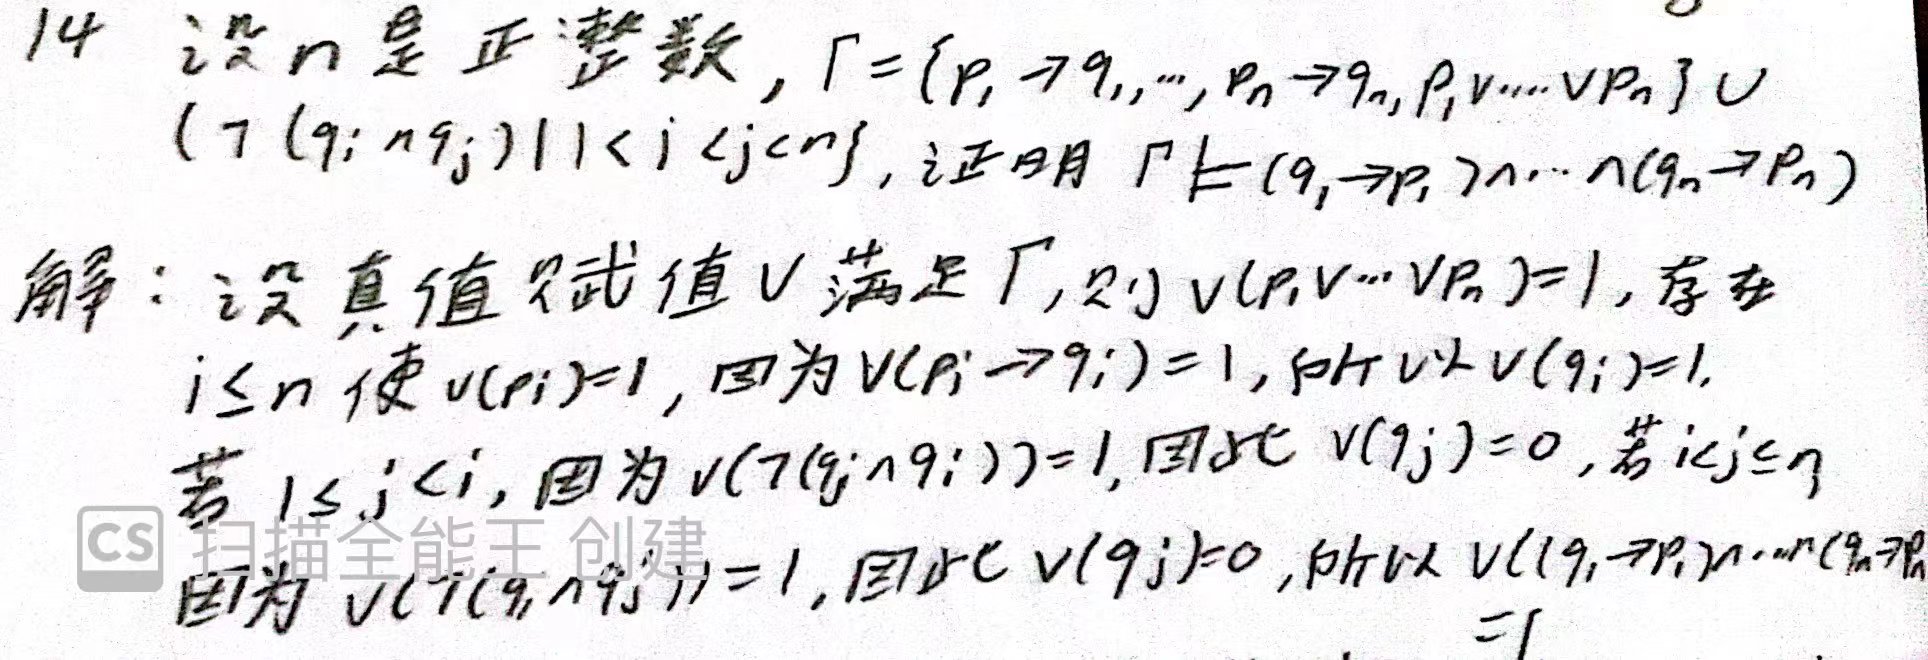 14 设n是正整数, Γ={p₁→q₁,…,pₙ→qₙ,p₁∨….∨pₙ}∪
{¬(qᵢ∧qⱼ)|1<i<j<n},证明 Γ⊨(q₁→p₁)∧…∧(qₙ→pₙ)
解:设真值赋值v满足Γ,则v(p₁∨…∨pₙ)=1,存在
i≤n使v(pᵢ)=1,因为v(pᵢ→qᵢ)=1,所以v(qᵢ)=1.
若1≤j<i,因为v(¬(qⱼ∧qᵢ))=1,因此v(qⱼ)=0,若i<j≤n
因为v(¬(qᵢ∧qⱼ))=1,因此v(qⱼ)=0,所以v((q₁→p₁)∧…∧(qₙ→pₙ
=1
CS 扫描全能王 创建